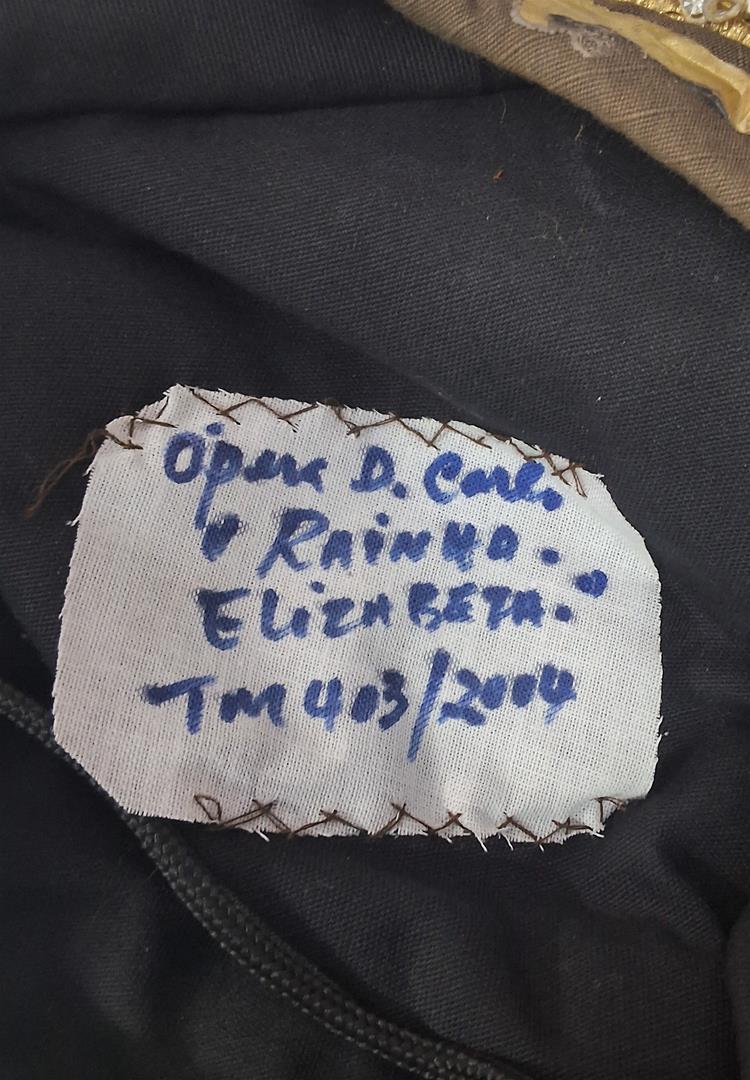 Ópera D. Carlo
" RAINHA.
ELIZABETA."
TM 403/2004